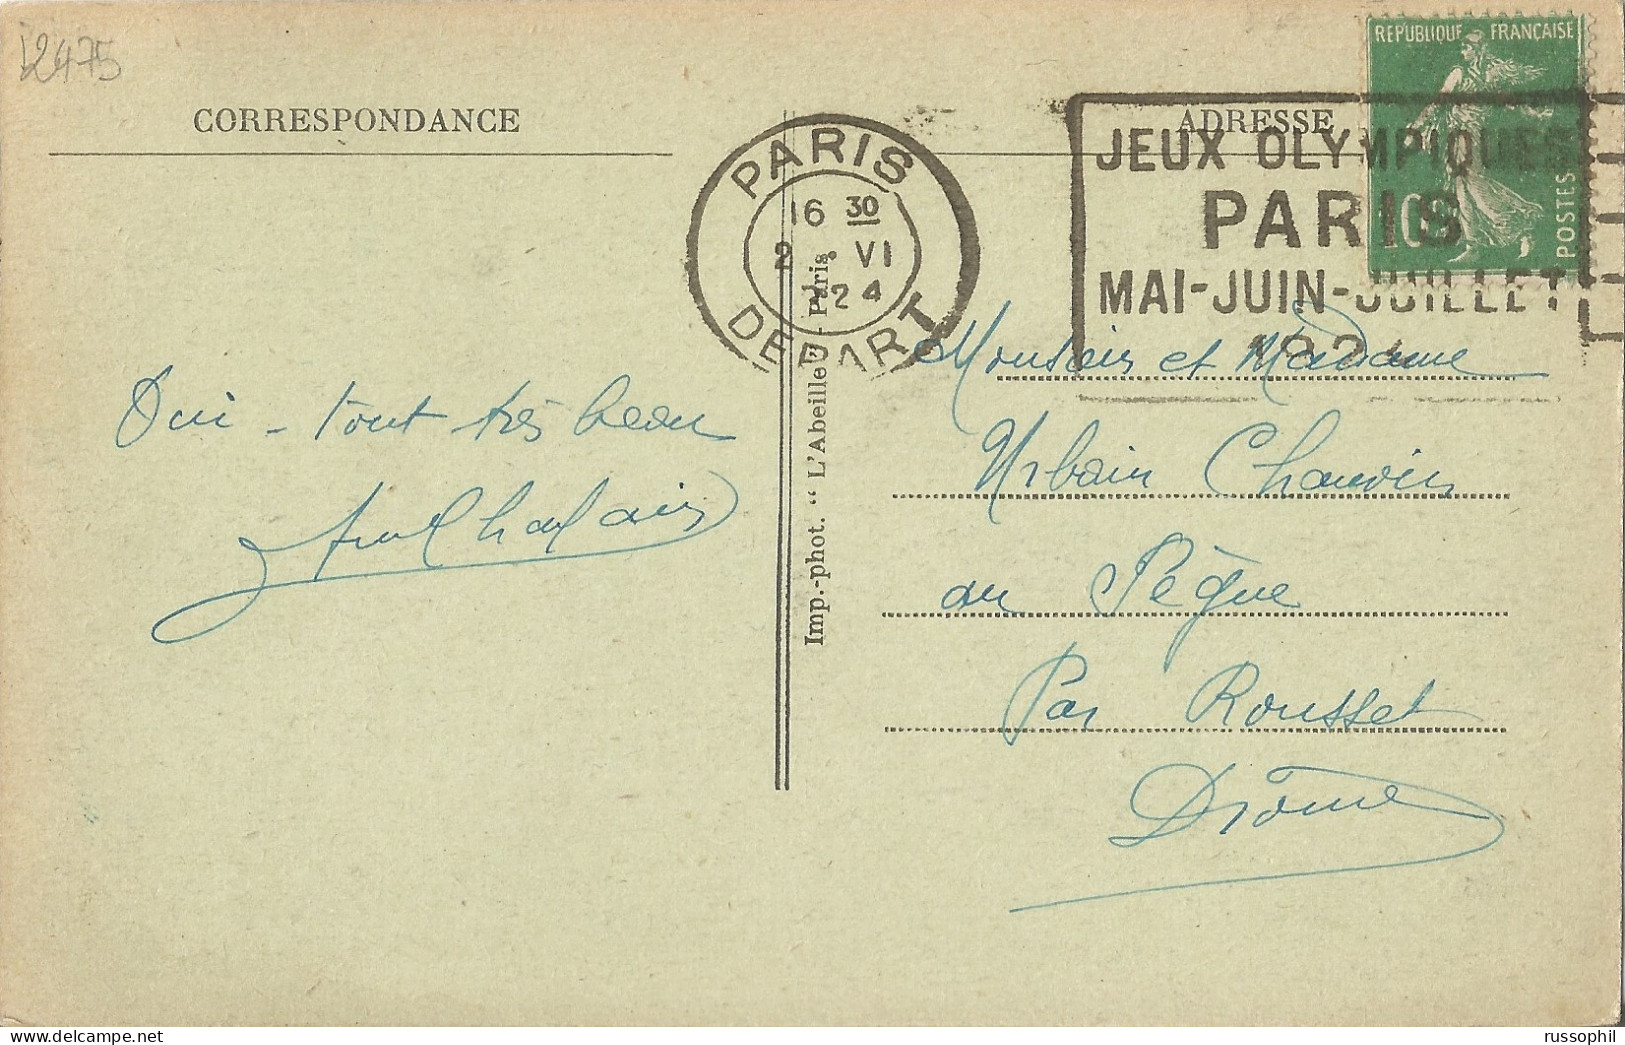 12475
CORRESPONDANCE
ADRESSE
REPUBLIQUE FRANÇAISE
POSTES
10
PARIS
16 30
2 VI
24
DEPART
JEUX OLYMPIQUES
PARIS
MAI-JUIN-JUILLET
1924
Imp.-phot. “ L'Abeille ” - Paris.
Oui - tout très beau
Monsieur et Madame
Urbain Chauvin
au Pègue
Par Rousset
Drôme
russophil www.delcampe.net